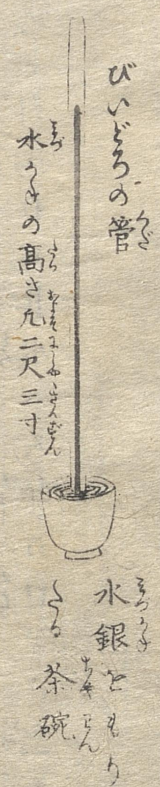 びいどろの管
水かねの高さ凡二尺三寸
水銀をもり
たる茶碗